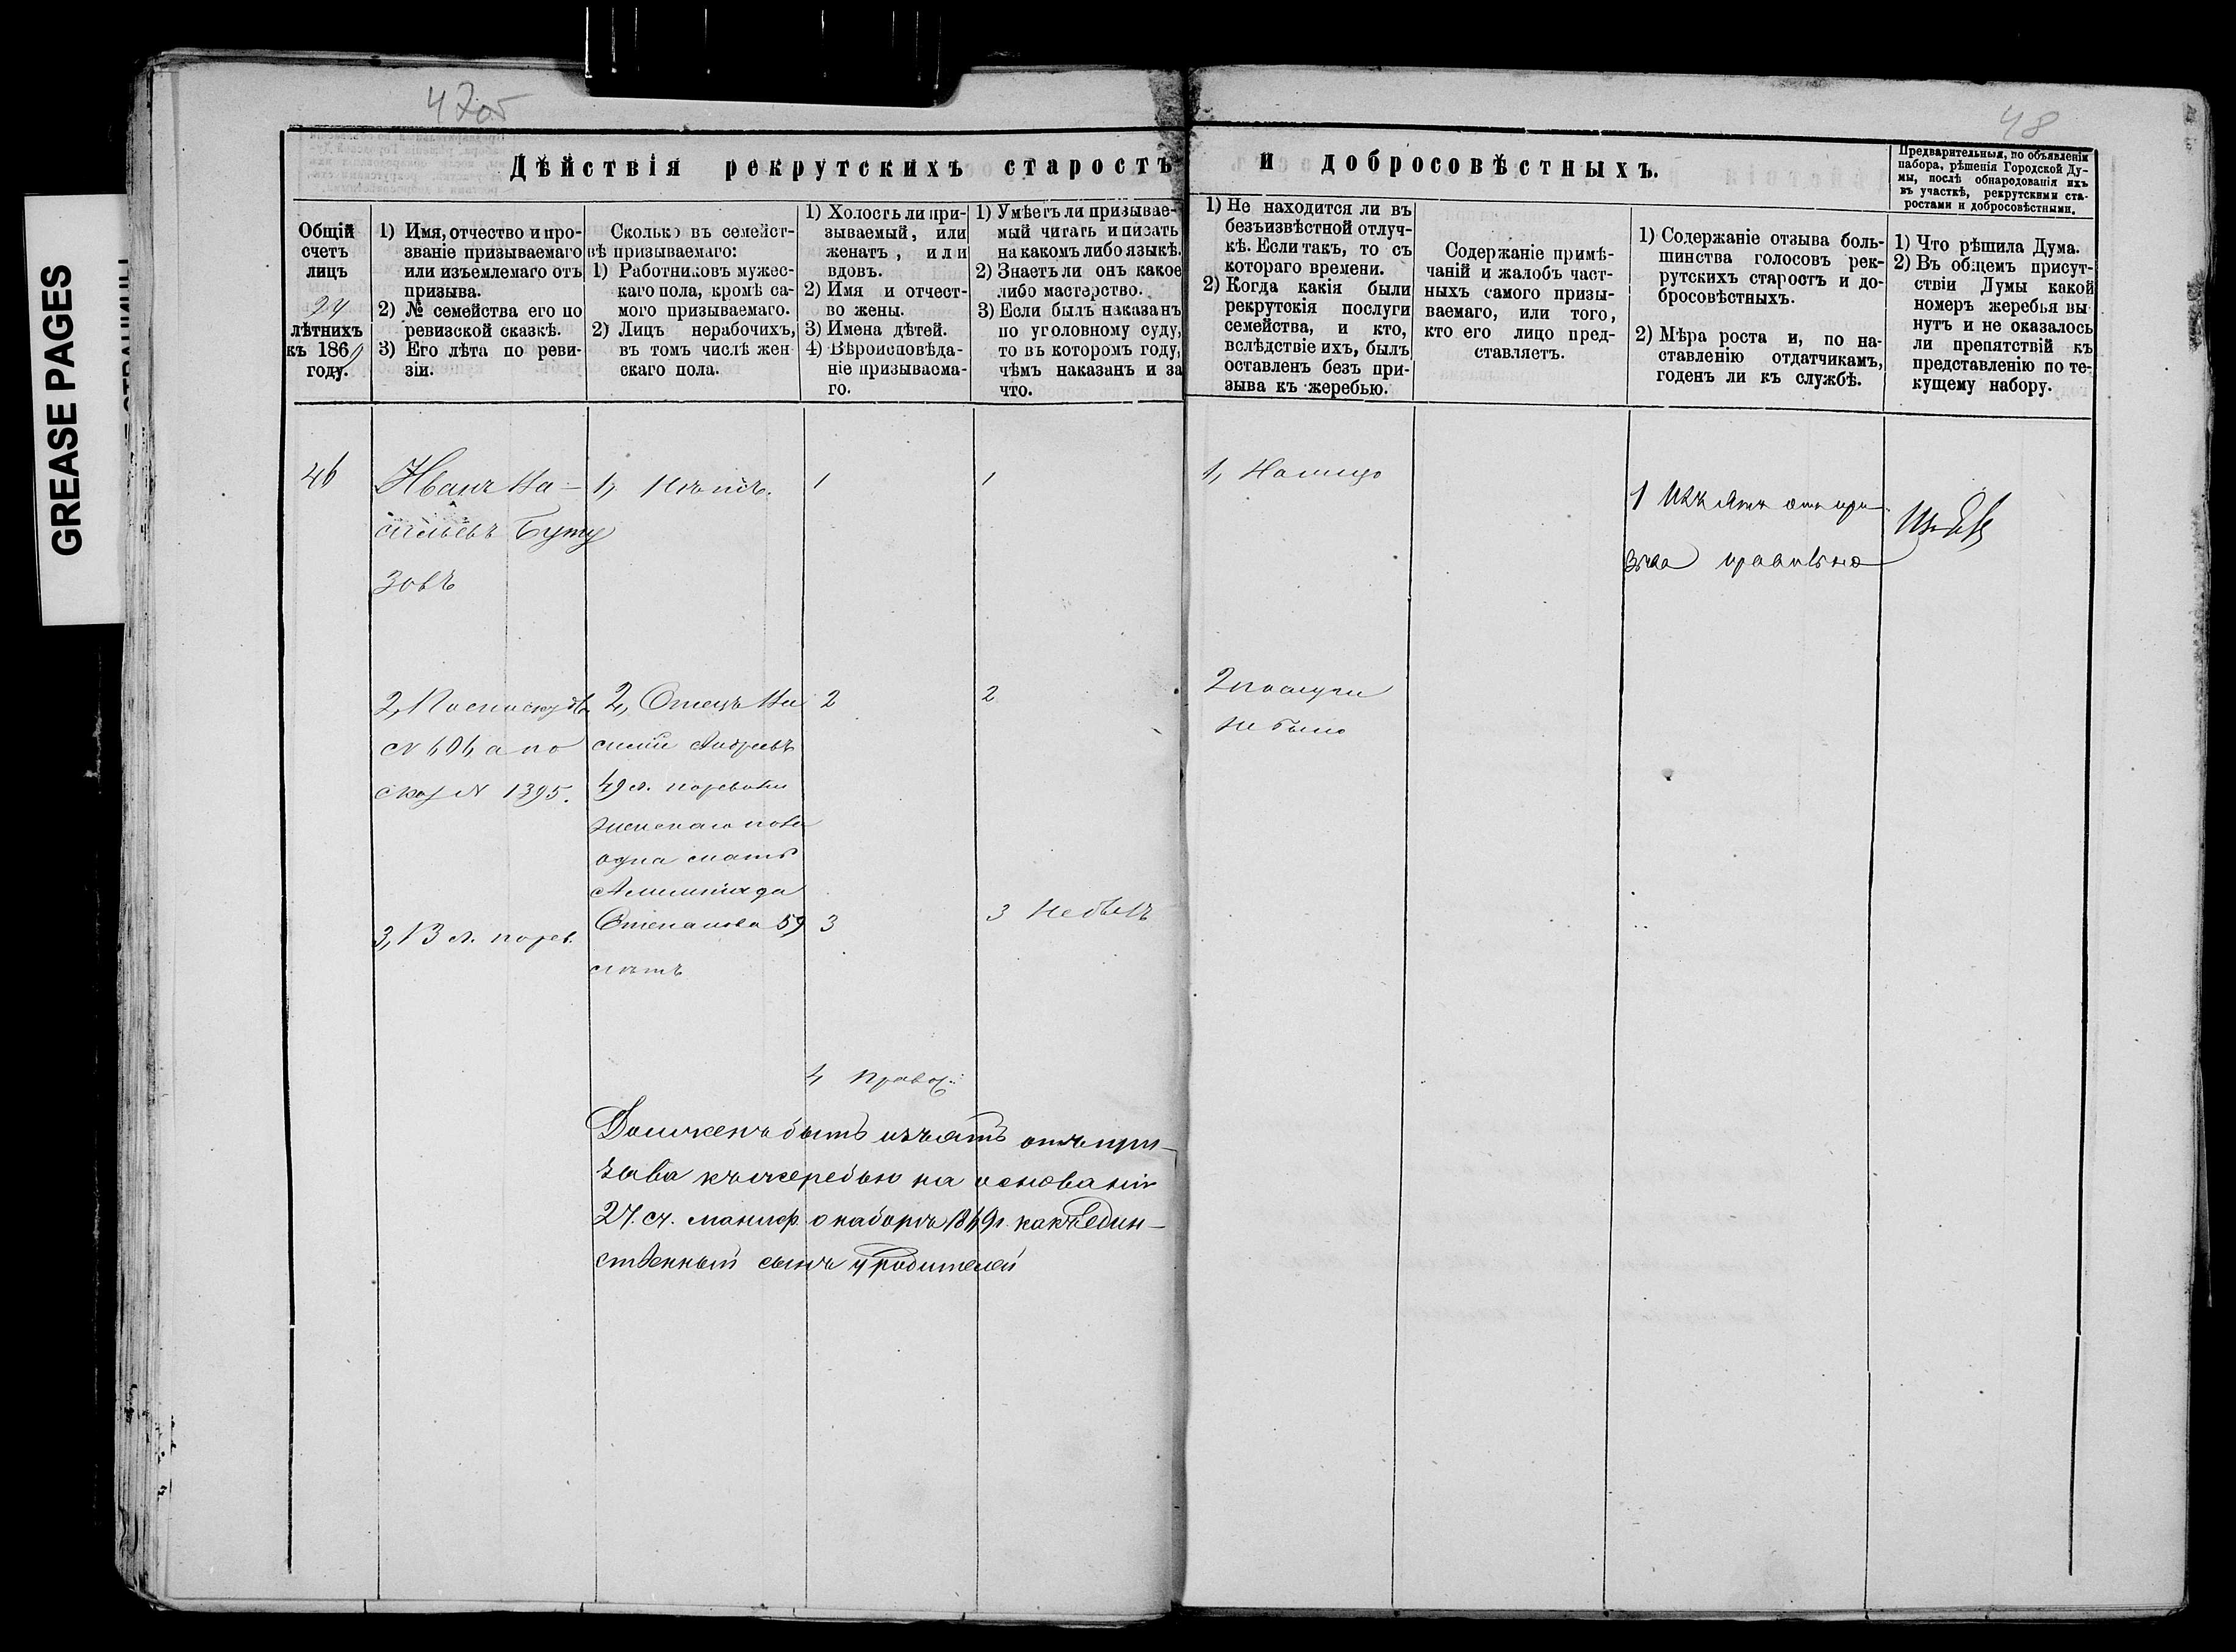 47об
48
GREASE PAGES
Дѣйствія рекрутскихъ старостъ и добросовѣстныхъ.
Предварительныя, по объявленіи
набора, рѣшенія Городской Ду-
мы, послѣ обнародованія ихъ
въ участкѣ, рекрутскими ста-
ростами и добросовѣстными.
Общій
счетъ
лицъ
24
лѣтнихъ
къ 1869
году.
1) Имя, отчество и про-
званіе призываемаго
или изъемлемаго отъ
призыва.
2) № семейства его по
ревизской сказкѣ.
3) Его лѣта по реви-
зіи.
Сколько въ семейст-
вѣ призываемаго:
1) Работниковъ мужес-
каго пола, кромѣ са-
мого призываемаго.
2) Лицъ нерабочихъ,
въ томъ числѣ жен
скаго пола.
1) Холостъ ли при-
зываемый, или
женатъ, или
вдовъ.
2) Имя и отчест-
во жены.
3) Имена дѣтей.
4) Вѣроисповѣда-
ніе призываема-
го.
1) Умѣетъ ли призывае-
мый читать и писать
на какомъ либо языкѣ.
2) Знаетъ ли онъ какое
либо мастерство.
3) Если былъ наказанъ
по уголовному суду,
то въ которомъ году,
чѣмъ наказанъ и за
что.
1) Не находится ли въ
безъизвѣстной отлуч-
кѣ. Если такъ, то съ
котораго времени.
2) Когда какія были
рекрутскія послуги
семейства, и кто,
вслѣдствіе ихъ, былъ
оставленъ безъ при-
зыва къ жеребью.
Содержаніе примѣ-
чаній и жалобъ част-
ныхъ самого призы-
ваемаго, или того,
кто его лицо пред-
ставляетъ.
1) Содержаніе отзыва боль-
шинства голосовъ рек-
рутскихъ старостъ и до-
бросовѣстныхъ.
2) Мѣра роста и, по на-
ставленію отдатчикамъ,
годенъ ли къ службѣ.
1) Что рѣшила Дума.
2) Въ общемъ присут-
ствіи Думы какой
номеръ жеребья вы
нутъ и не оказалось
ли препятствій къ
представленію по те-
кущему набору.
46
Иванъ Ва-
сильевъ Буту
зовъ
2, По списку
№ 606 а по
сказ № 1395.
3, 13 л. по рев.
1, Нѣтъ.
2, Отецъ Ва
силій Андреевъ
49 л. по ревизіи
женскаго пола
одна мать
Степанова 59
лѣтъ
1
2
3
4 Правос:
1
2
3 Не былъ
Долженъ быть изъятъ отъ при-
зыва къ жеребью на основаніи
27. ст. маниф. о наборѣ 1869г. какъ един-
ственный сынъ у родителей
1, На лицо
2 послуги
не было
1 Изъятъ отъ при-
зыва правильно